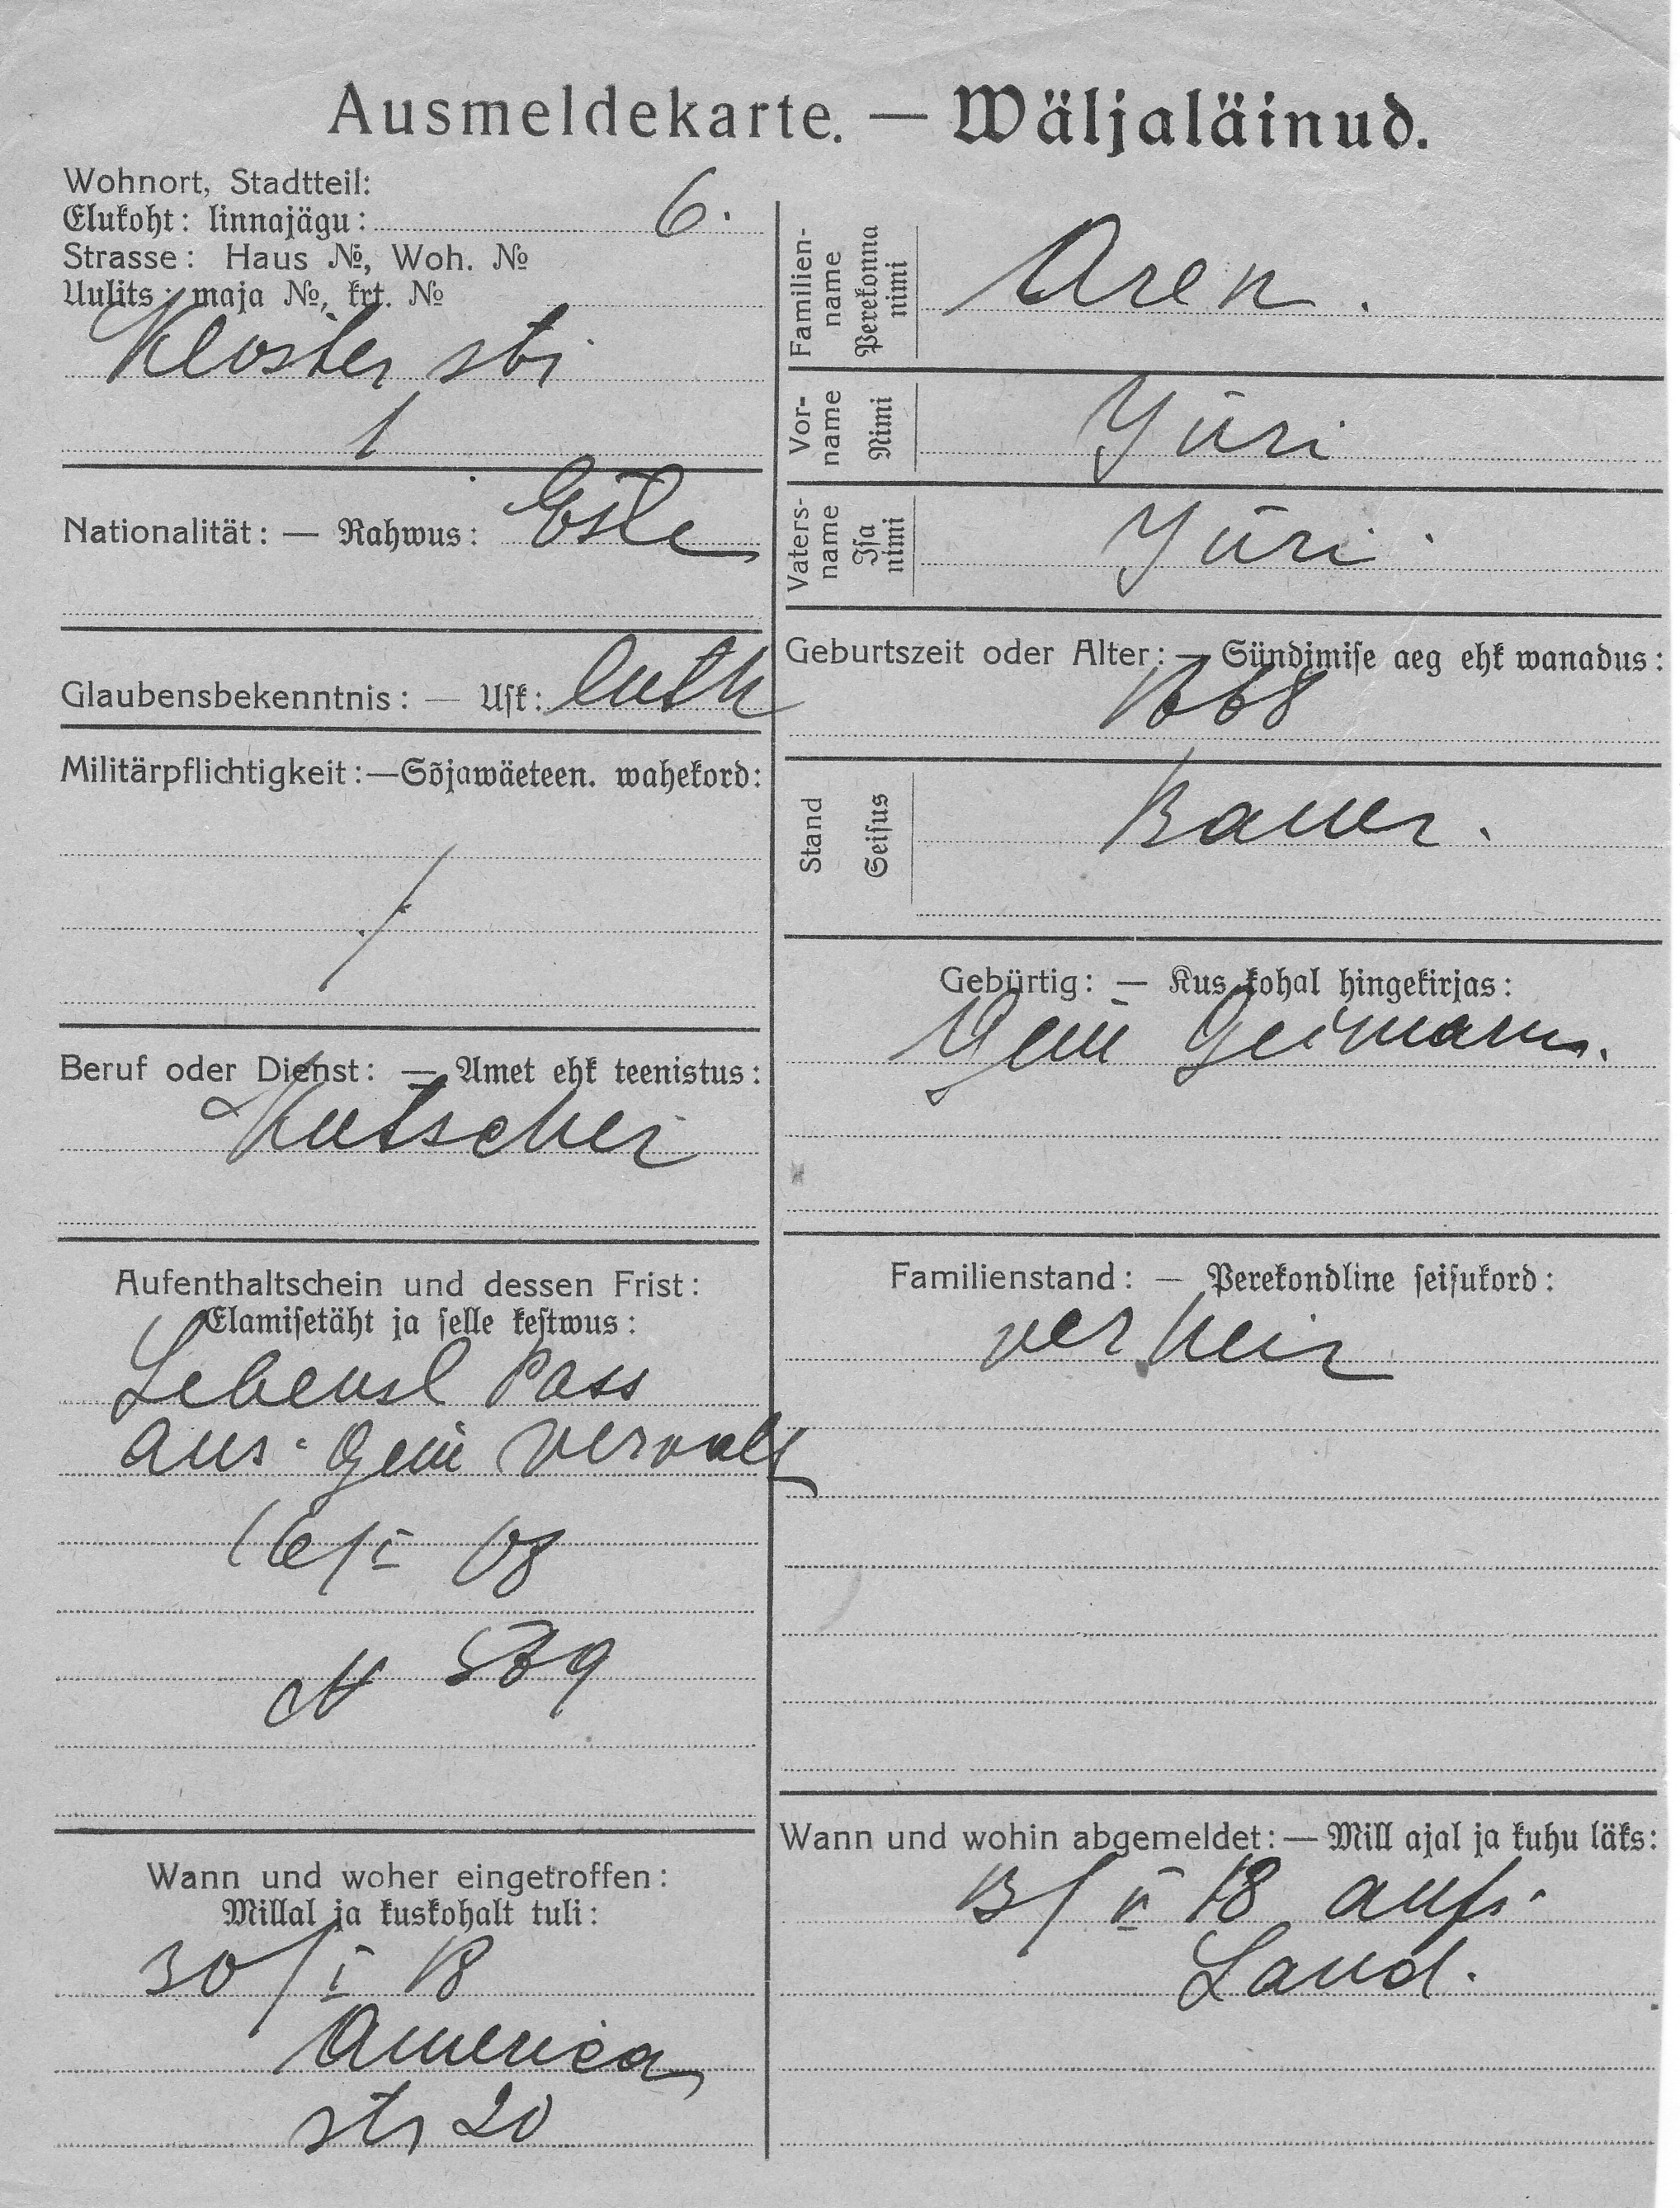 Ausmeldekarte. — Wäljaläinud.
Wohnort, Stadtteil:
Elukoht: linnajägu: 6.
Strasse: Haus №, Woh. №
Uulits: maja №, krt. №
Kloster str
1
Nationalität: — Rahwus: Este
Glaubensbekenntnis: — Usk: luth
Militärpflichtigkeit: — Sõjawäeteen. wahekord:
/
Beruf oder Dienst: — Amet ehk teenistus:
Kutscher
Aufenthaltschein und dessen Frist:
Elamisetäht ja selle kestwus:
Lebensl Pass
aus. Gem verwalt
16/I 08
№ 539
Wann und woher eingetroffen:
Millal ja kuskohalt tuli:
30/I 18
America
str 20
Familien-name Perekonna nimi Aren.
Vor-name Nimi Jüri
Vaters-name Isa nimi Jüri.
Geburtszeit oder Alter: — Sündimise aeg ehk wanadus:
1868
Stand Seisus Bauer.
Gebürtig: — Kus kohal hingekirjas:
Gem
Familienstand: — Perekondline seisukord:
verheir
Wann und wohin abgemeldet: — Mill ajal ja kuhu läks:
13/V 18 aufs.
Land.